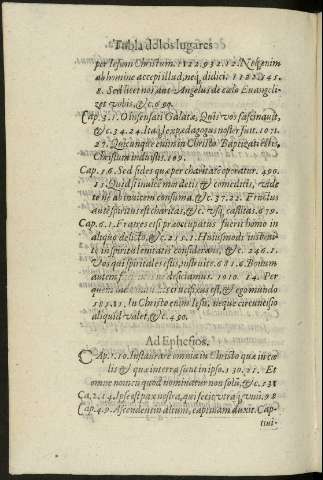 Tabla de los lugares
per Iesum Christum. 1122.932.12. Neq; enim
ab homine accepi illud, neq; didici. 1122.345.
8. Sed licet nos aut Angelus de cælo Euangeli-
zet vobis, &c. 699.
Cap. 3.1. O insensati Galatæ, Quis vos fascinauit,
&c. 34.24. Itaq; lex pædagogus noster fuit. 1071.
27. Quicunque enim in Christo Baptizati estis,
Christum induistis. 109.
Cap. 5.6. Sed fides quæ per charitatē operatur. 490.
15. Quid si inuicē mordetis & comeditis, vide
te ne ab inuicem consumā. &c. 37.22. Fructus
autē spiritus est charitas, &c. vsq; castitas. 679.
Cap. 6.1. Fratres & si præoccupatus fuerit homo in
aliquo delicto, &c. 215.1. Huiusmodi
in spiritu lenitatis considerans, &c. 246.1.
Vos qui spirituales estis, instruite. 681.6. Bonum
autem deficiamus. 1010. 14. Per
quem crucifixus est, & ego mundo
581.15. In Christo enim Iesu, neque circuncisio
aliquid valet, &c. 490.
Ad Ephesios.
CAp. 1.10. Instaurare omnia in Christo quæ in cæ-
lis & quæ in terra sunt in ipso. 130.21. Et
omne nomē quod nominatur non solū, &c. 138
Ca. 2.14. Ipse est pax nostra, qui fecit vtraq; vnū. 98
Cap. 4.9. Ascendens in altum, captiuam duxit. Cap-
tiui-